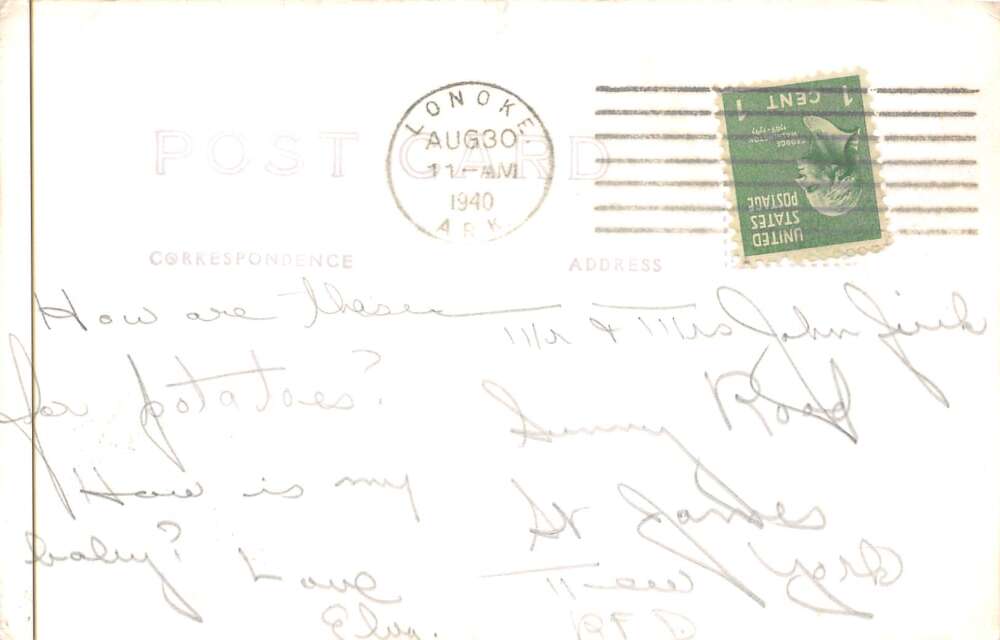 POST CARD
LONOKE.
AUG 30
11-AM
1940
ARK
1 CENT 1
GEORGE WASHINGTON
1789-1797
UNITED
STATES
POSTAGE
CORRESPONDENCE
ADDRESS
How are these
for potatoes?
How is my
baby?
Love
Elva.
Mr & Mrs John Jirik
Sunny Road
St James
New York
RFD